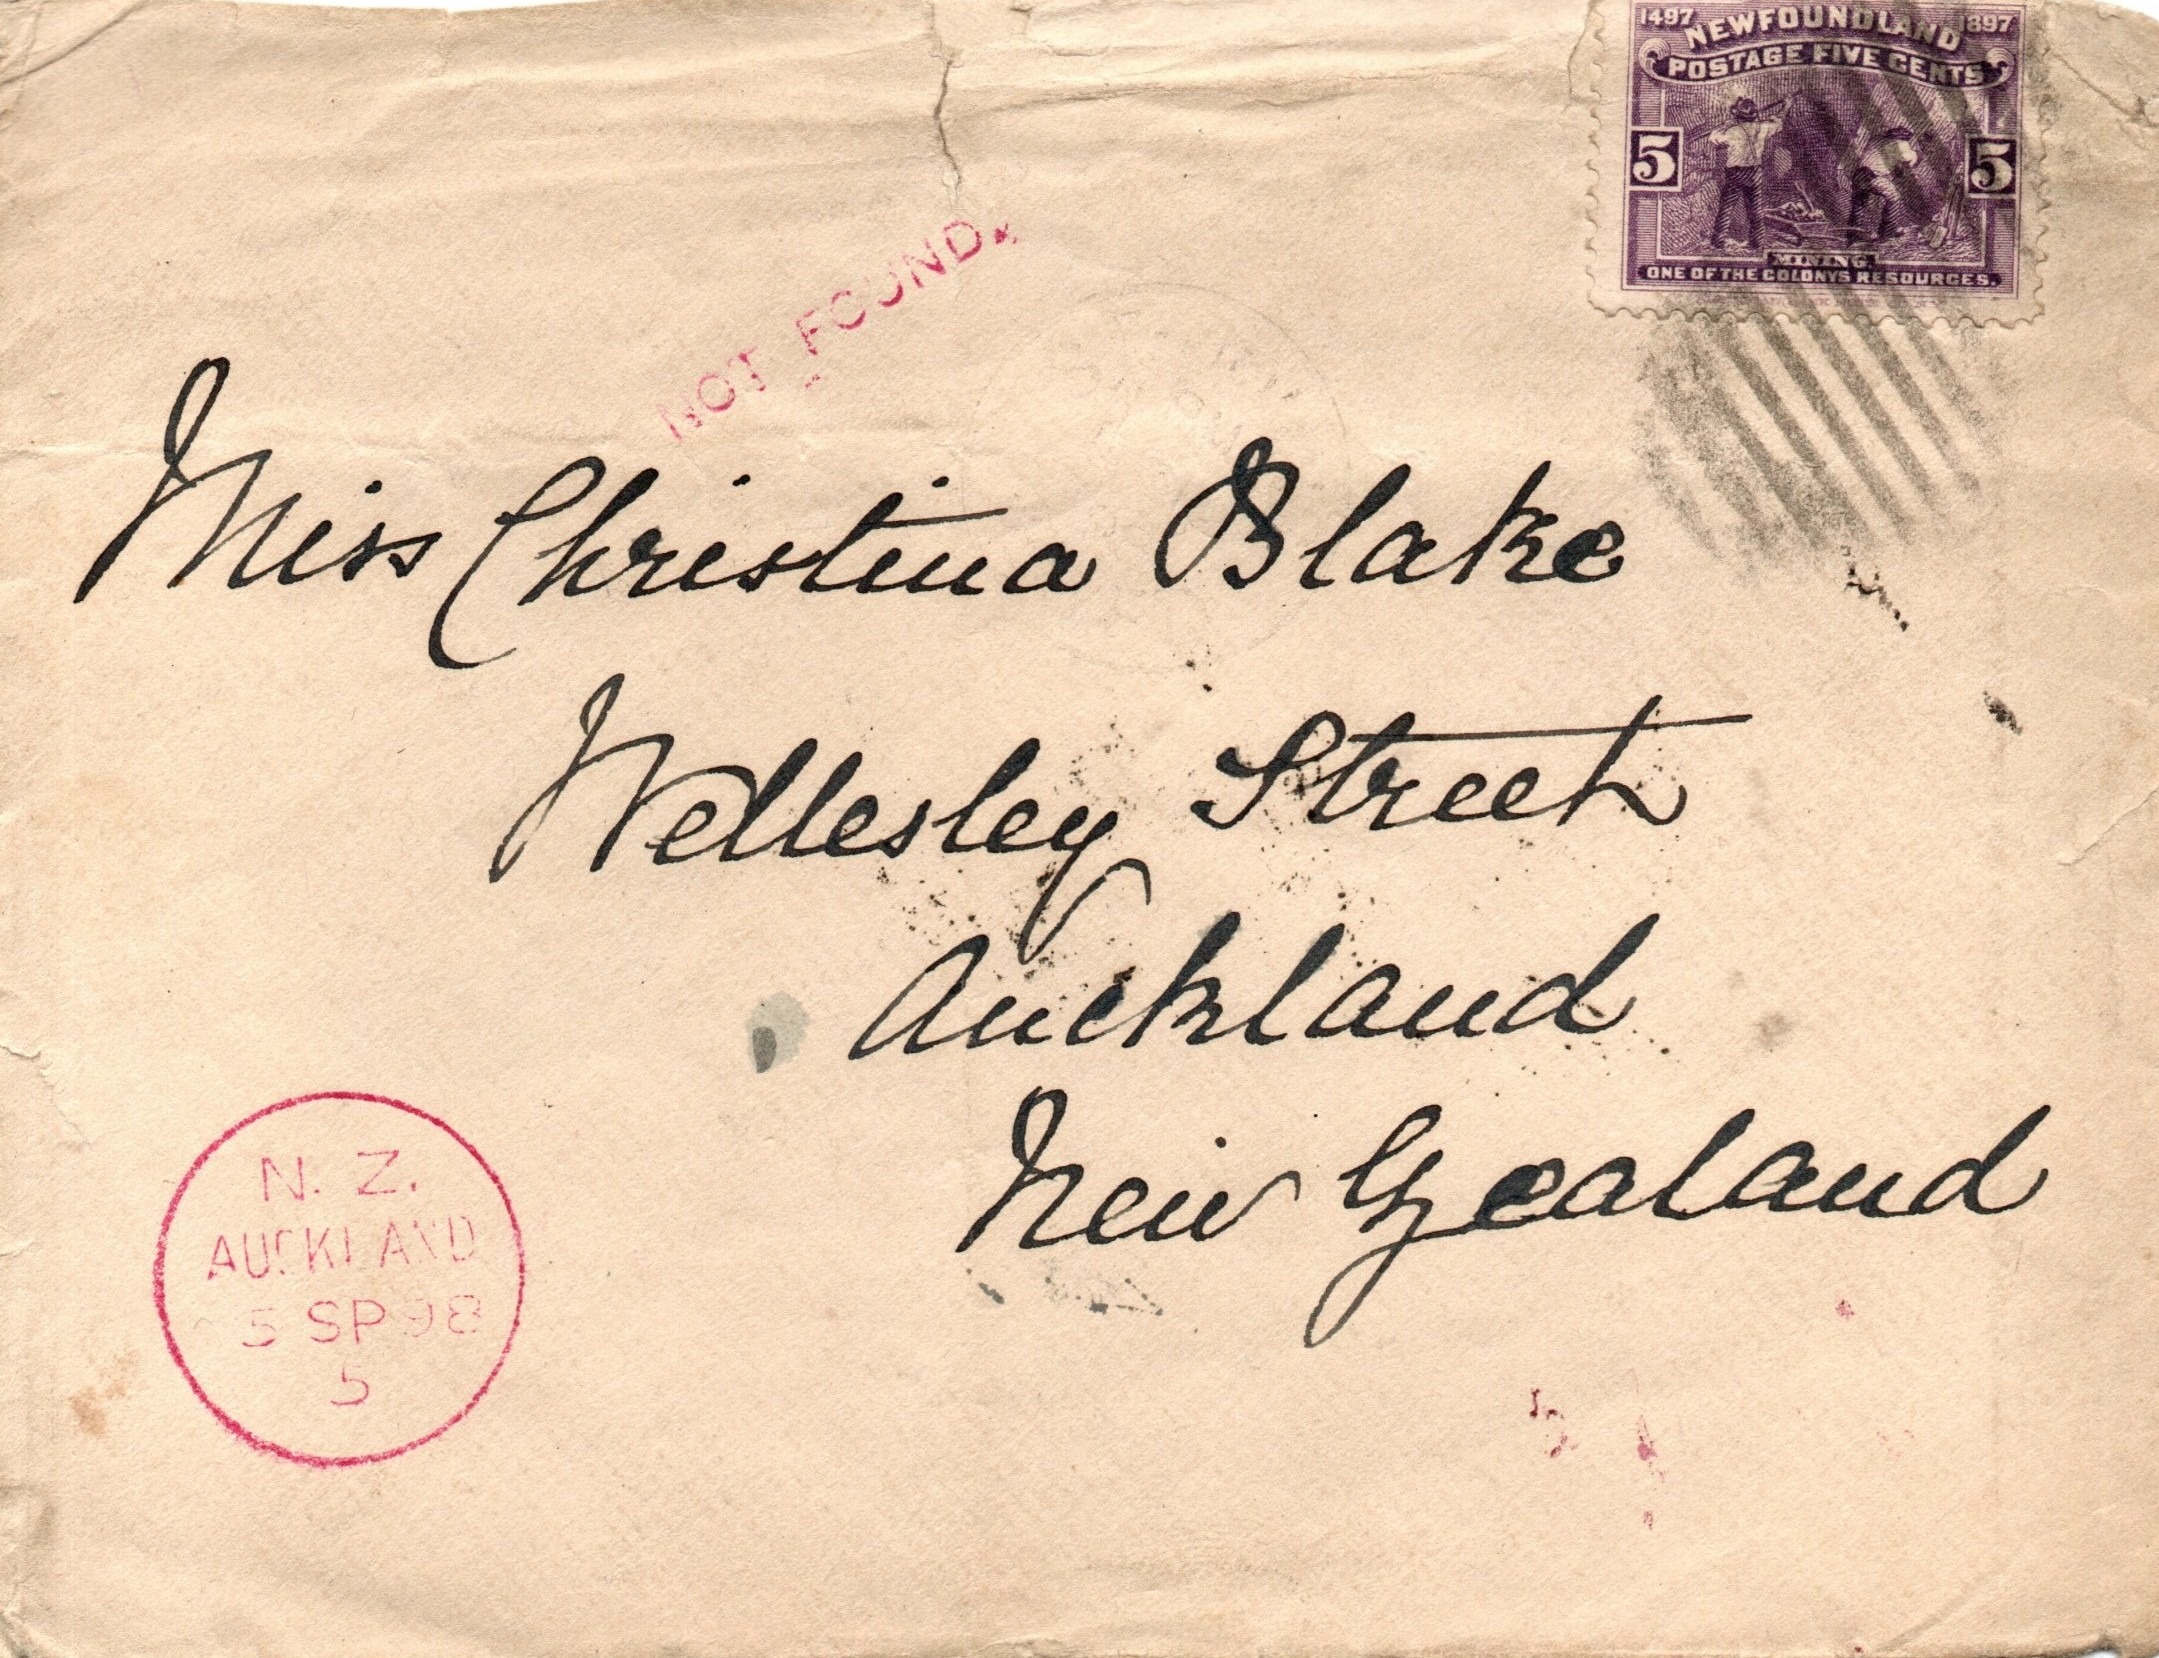 1497 NEWFOUNDLAND 1897
POSTAGE FIVE CENTS
5 5
MINING
ONE OF THE COLONYS RESOURCES.
NOT FOUND.
Miss Christina Blake
Wellesley Street
Auckland
New Zealand
N. Z.
AUCKLAND
5 SP 98
5